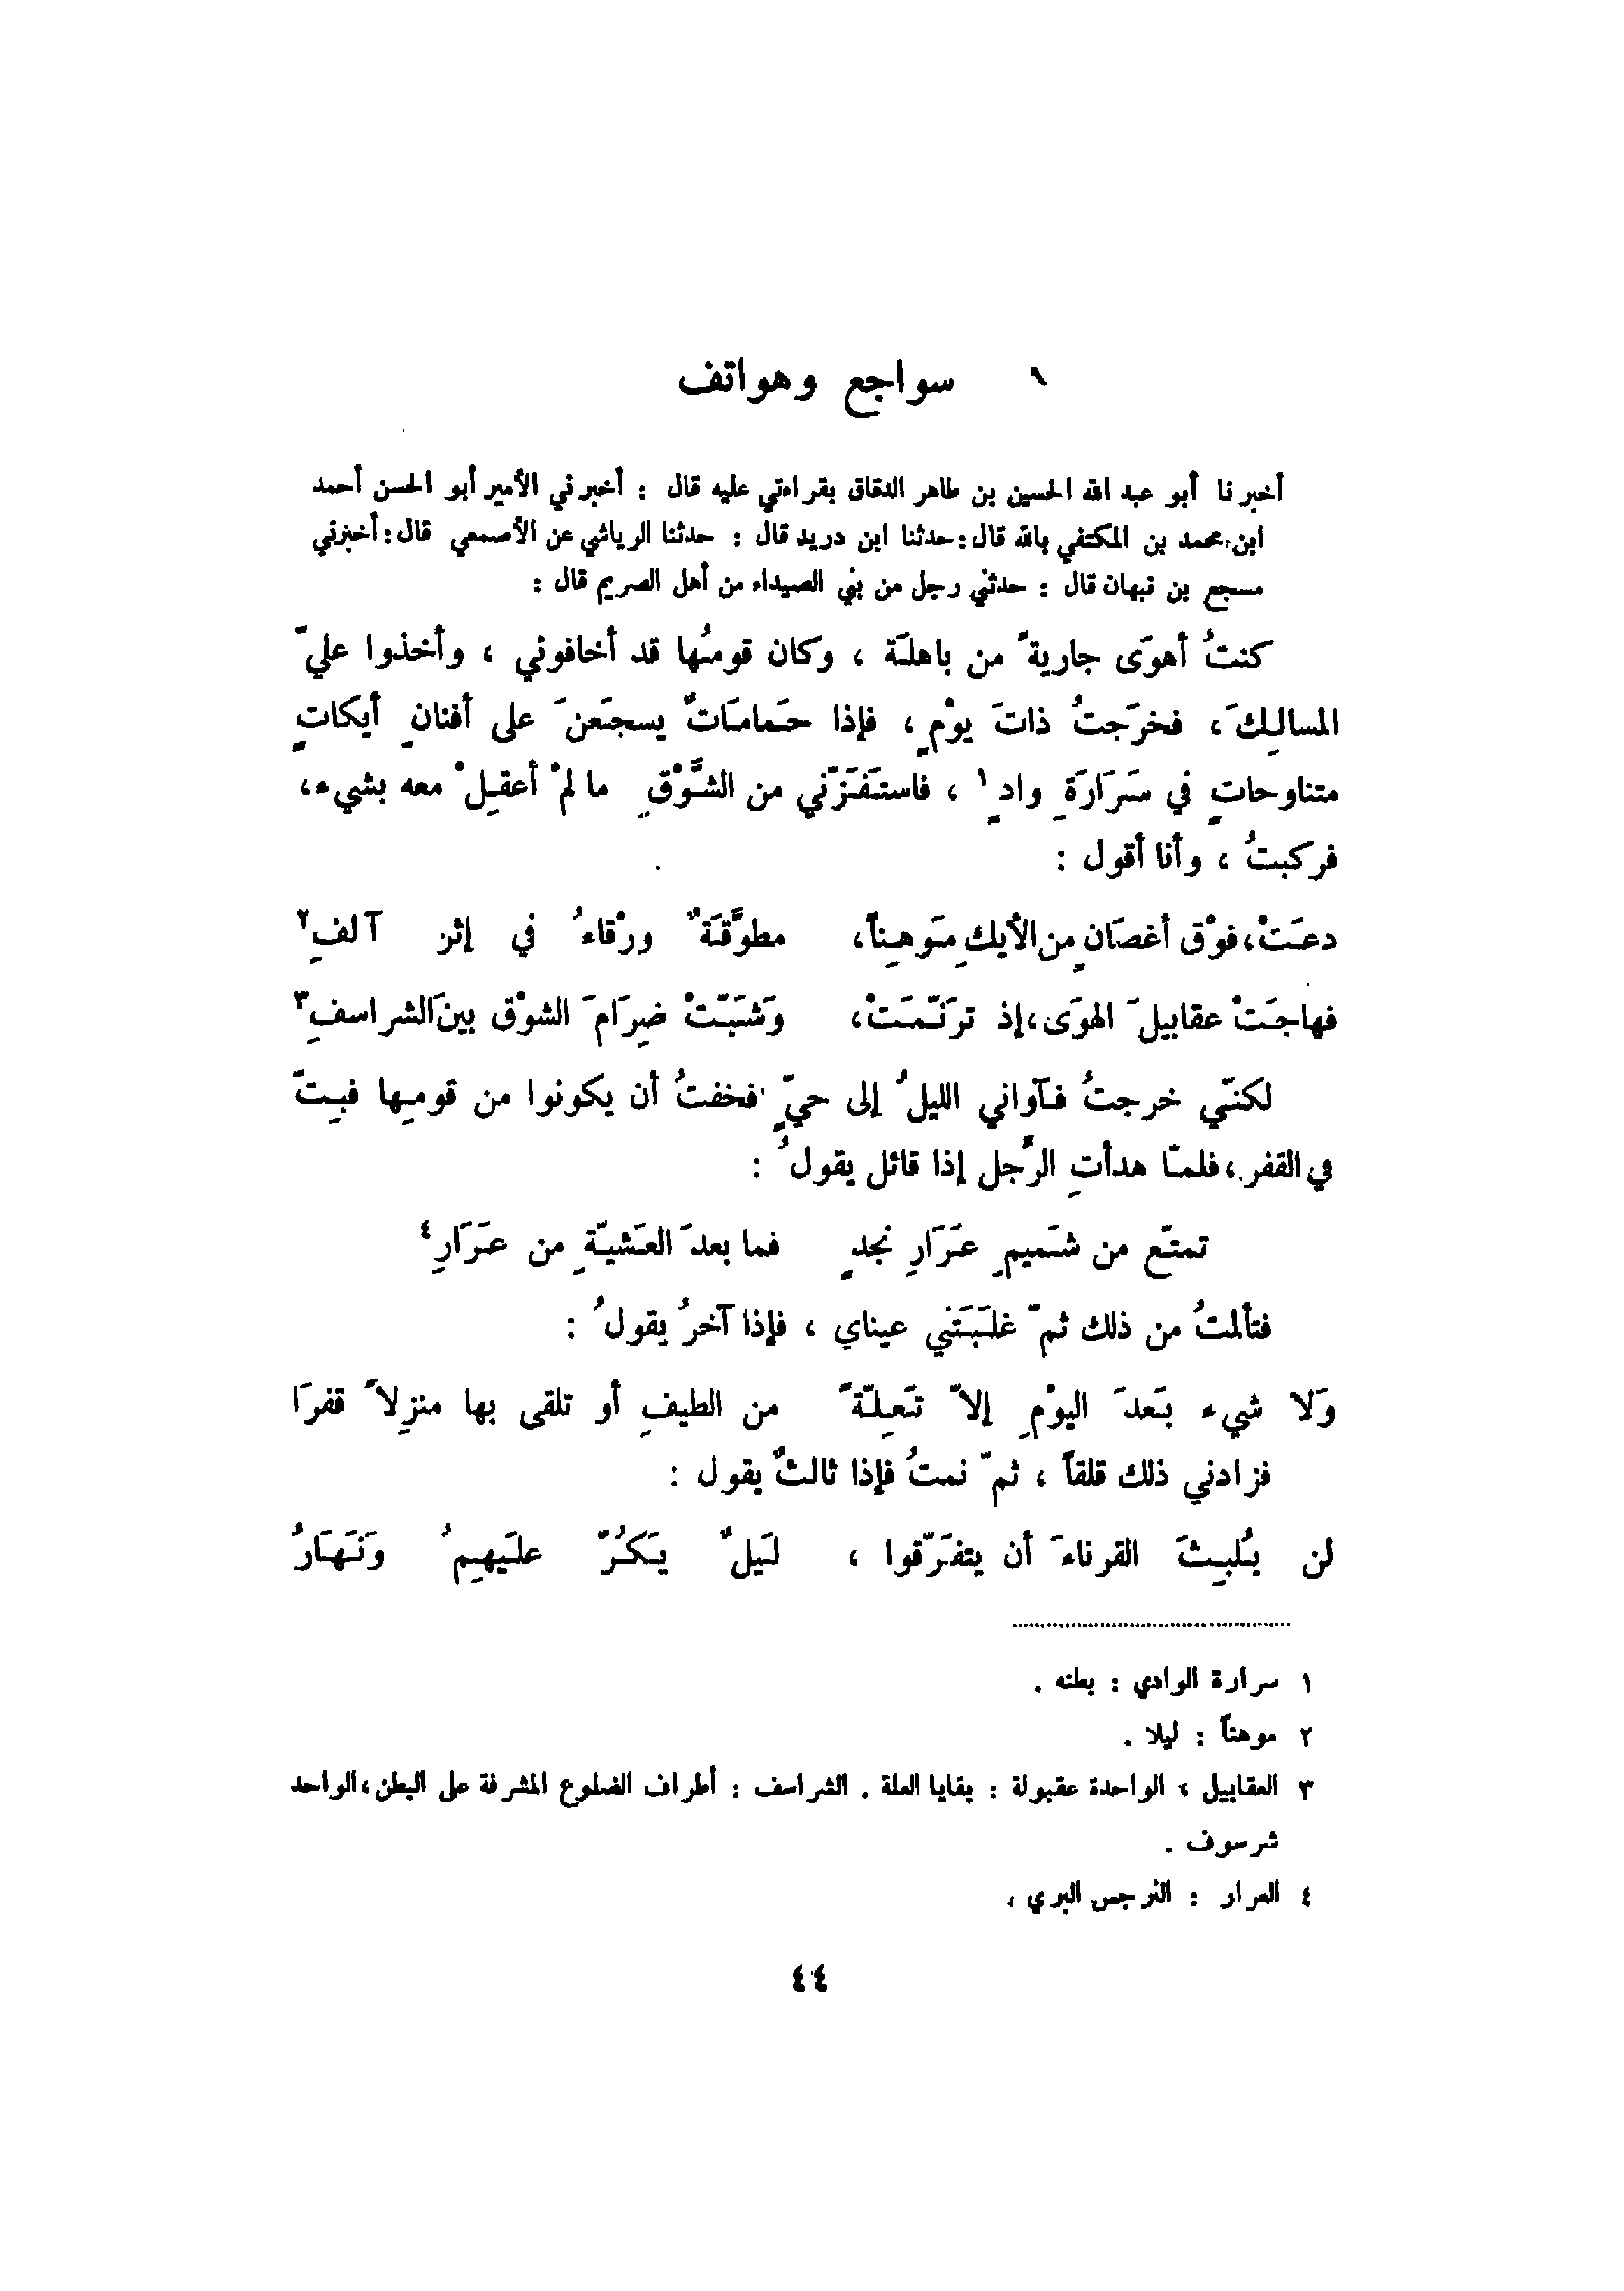 سواجع وهواتف
أخبرنا أبو عبد الله الحسين بن طاهر الدقاق بقراءتي عليه قال : أخبرني الأمير أبو الحسن أحمد
ابن محمد بن المكتفي بالله قال : حدثنا ابن دريد قال : حدثنا الرياشي عن الأصمعي قال : أخبرني
مسجع بن نبهان قال : حدثني رجل من بني الصيداء من أهل الصريم قال :
كنتُ أهوَى جاريةً من باهلَة ، وكان قومُها قد أخافوني ، وأخذوا عليّ
المسالِكَ ، فخرَجتُ ذاتَ يوْمٍ ، فإذا حَمامَاتٌ يسجَعنَ على أفنانِ أيكاتٍ
متناوحاتٍ في سَرَارَةِ وادٍ١ ، فاستَفَزّني من الشَّوْقِ ما لمْ أعقِلْ معه بشيء ،
فركبتُ ، وأنا أقول :
دعَتْ، فوْق أغصَانٍ من الأيكِ مَوهِناً، مطوَّقَةٌ ورْقاءُ في إثر آلفِ٢
فهاجَتْ عقابيلَ الهوَى، إذ ترَنّمَتْ، وَشَبّتْ ضِرَامَ الشوْق بينَ الشراسفِ٣
لكنّي خرجتُ فآواني الليلُ إلى حيٍّ فخفتُ أن يكونوا من قومِها فبِتّ
في القفر، فلمّا هدأتِ الرِّجل إذا قائل يقولُ :
تمتّع من شَميمِ عَرَارِ نجدٍ فما بعدَ العَشيّةِ من عَرَارِ٤
فتألمتُ من ذلك ثمّ غلَبَتني عيناي ، فإذا آخرُ يقولُ :
وَلا شيء بَعدَ اليوْمِ إلاّ تَعِلّةً من الطيفِ أو تلقى بها منزِلاً قفرَا
فزادني ذلك قلقاً ، ثمّ نمتُ فإذا ثالثٌ يقول :
لن يُلبِثَ القرناءَ أن يتفَرّقوا ، لَيلٌ يَكُرّ علَيهِمُ وَنَهَارُ
١ سرارة الوادي : بطنه .
٢ موهناً : ليلا .
٣ العقابيل ، الواحدة عقبولة : بقايا العلة . الشراسف : أطراف الضلوع المشرفة على البطن ، الواحد
شرسوف .
٤ العرار : النرجس البري .
٤٤